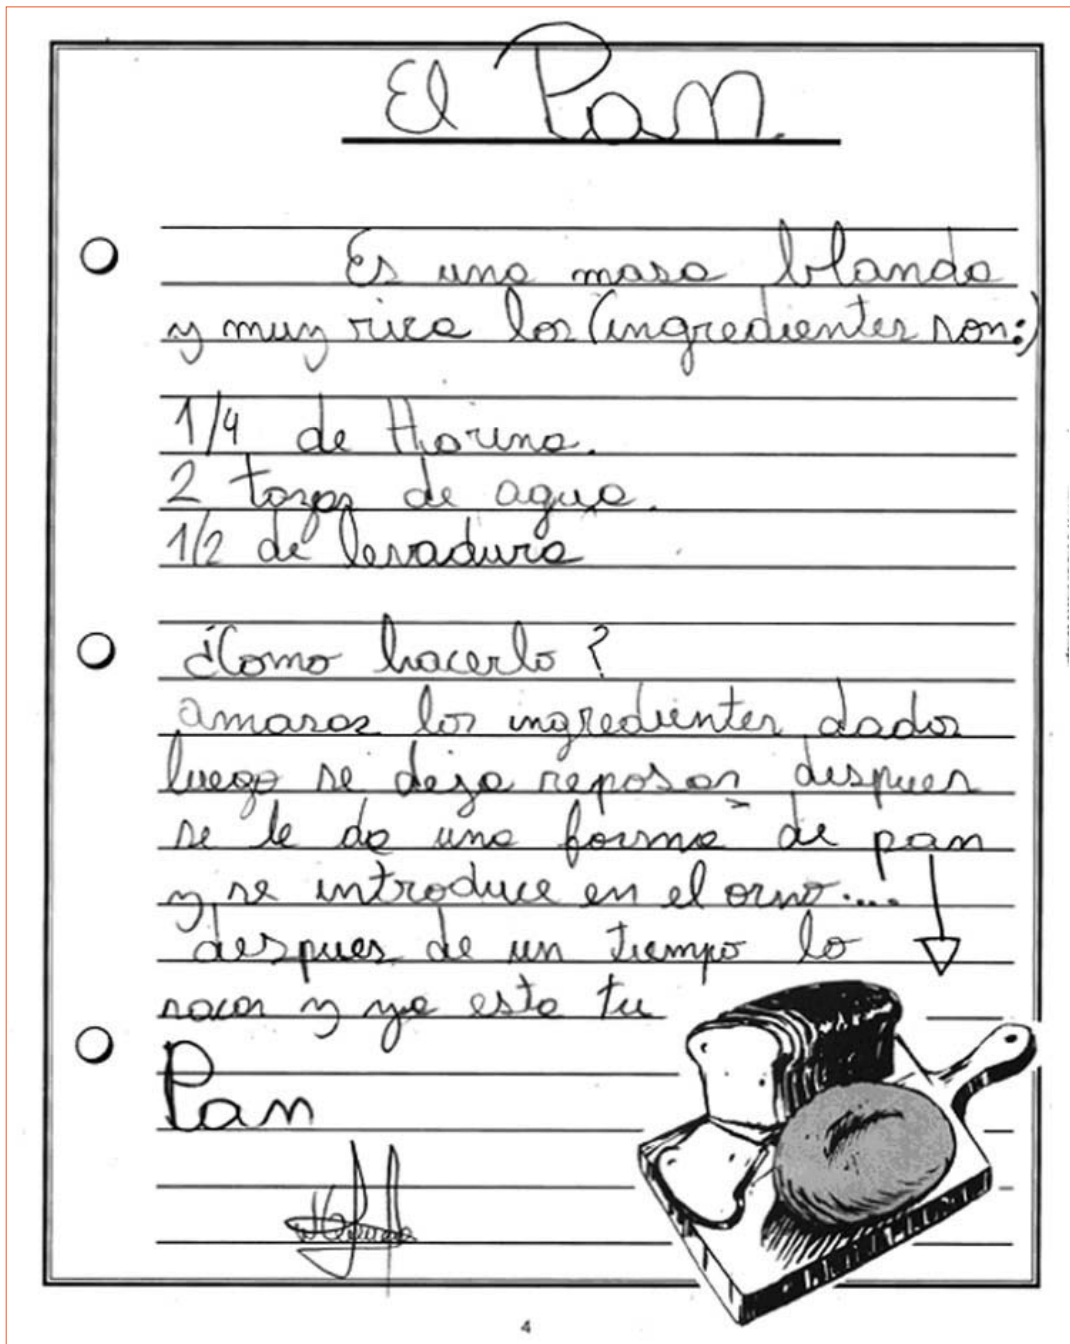 El Pan.
Es una masa blanda
y muy rica los (ingredientes son:)
1/4 de Harina.
2 tazas de agua.
1/2 de levadura
¿Como hacerlo?
amasas los ingredientes dados
luego se deja reposar despues
se le da una forma de pan
y se introduce en el orno....
despues de un tiempo lo
sacas y ya esta tu
Pan
4